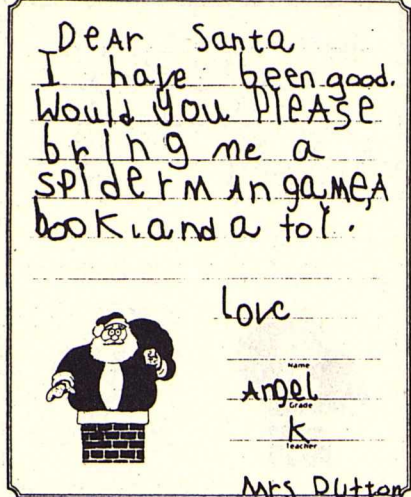 Dear Santa
I have been good.
Would you PleAse
bring me a
spiderman game,A
book.and a toI.
Love
Name
Angel
Grade
K
Teacher
Mrs Dutton